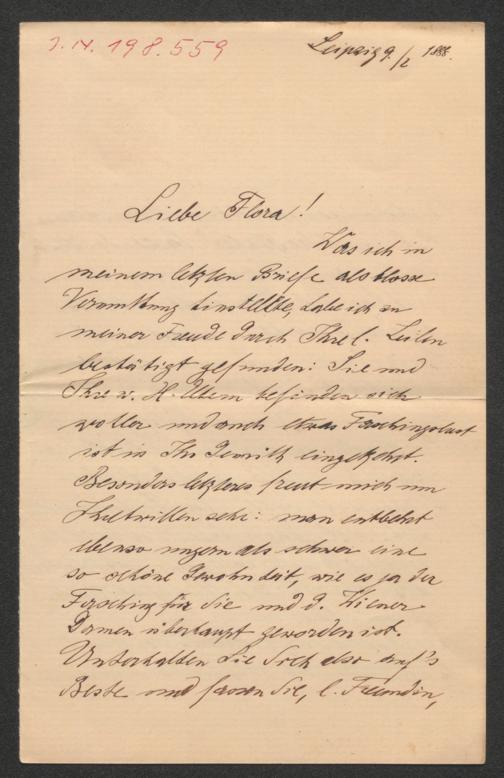 I.N. 198.559
Leipzig 9/2 1888.
Liebe Flora!
Was ich in
meinem letzten Briefe als blosse
Vermuthung hinstellte, habe ich zu
meiner Freude durch Ihre l. Zeilen
bestätigt gefunden: Sie und
Ihre v. H. Eltern befinden sich
wohler und auch etwas Faschingslust
ist in Ihr Gemüth eingekehrt.
Besonders letzteres freut mich um
Ihretwillen sehr: man entbehrt
ebenso ungern als schwer eine
so schöne Gewohnheit, wie es ja der
Fasching für Sie und d. Wiener
Damen überhaupt geworden ist.
Unterhalten Sie Sich also auf's
Beste und freuen Sie, l. Freundin,